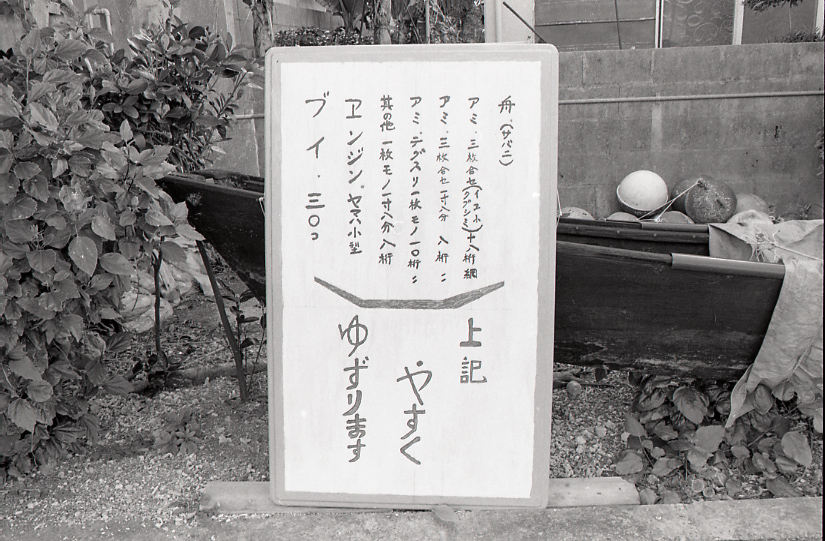 舟.(サバニ)
アミ.三枚合せ(イユトゥ)十八桁網
アミ.三枚合セ一寸八分 八桁〃
アミ.テグスリ一枚モノ一〇桁〃
其の他 一枚モノ一寸八分八桁
エンジン.ヤマハ小型
ブイ.三〇コ
上記
やすく
ゆずります